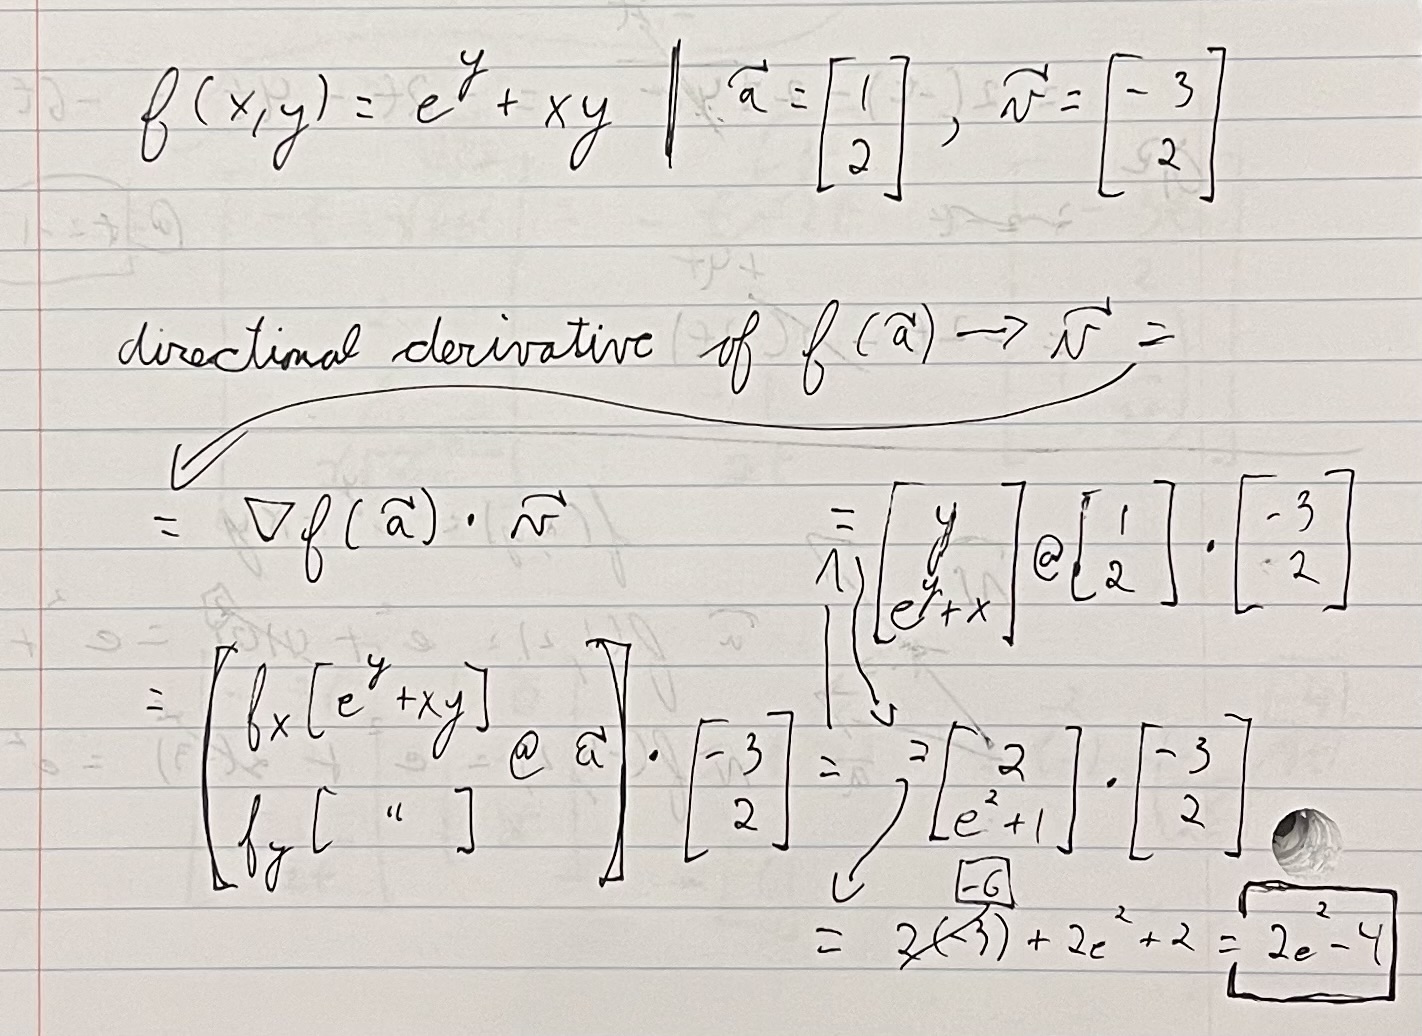 f(x,y) = e^y + xy | a⃗ = [1 2], v⃗ = [-3 2]
directional derivative of f(a⃗) → v⃗ =
= ∇f(a⃗) · v⃗
= [f_x[e^y + xy] f_y[ " ] @ a⃗] · [-3 2] =
= [y e^y + x] @ [1 2] · [-3 2]
= [2 e^2 + 1] · [-3 2]
-6
= 2(-3) + 2e^2 + 2 = 2e^2 - 4